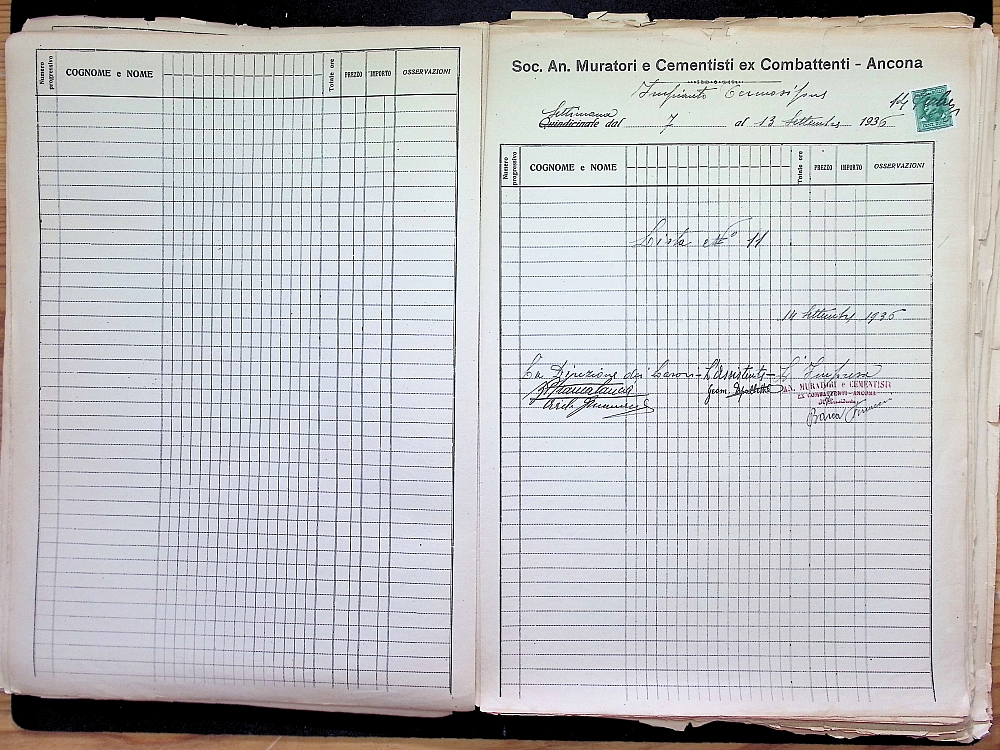 Numero progressivo COGNOME e NOME Totale ore PREZZO IMPORTO OSSERVAZIONI
Soc. An. Muratori e Cementisti ex Combattenti - Ancona
Impianto Termosifone
Settimana
Quindicinale dal 7 al 13 Settembre 1936
Numero progressivo COGNOME e NOME Totale ore PREZZO IMPORTO OSSERVAZIONI
Lista N° 11
14 Settembre 1936
La Direzione dei Lavori - L'Assistente - L'Impresa
Geom.
AN. MURATORI e CEMENTISTI
EX COMBATTENTI - ANCONA
Arch.